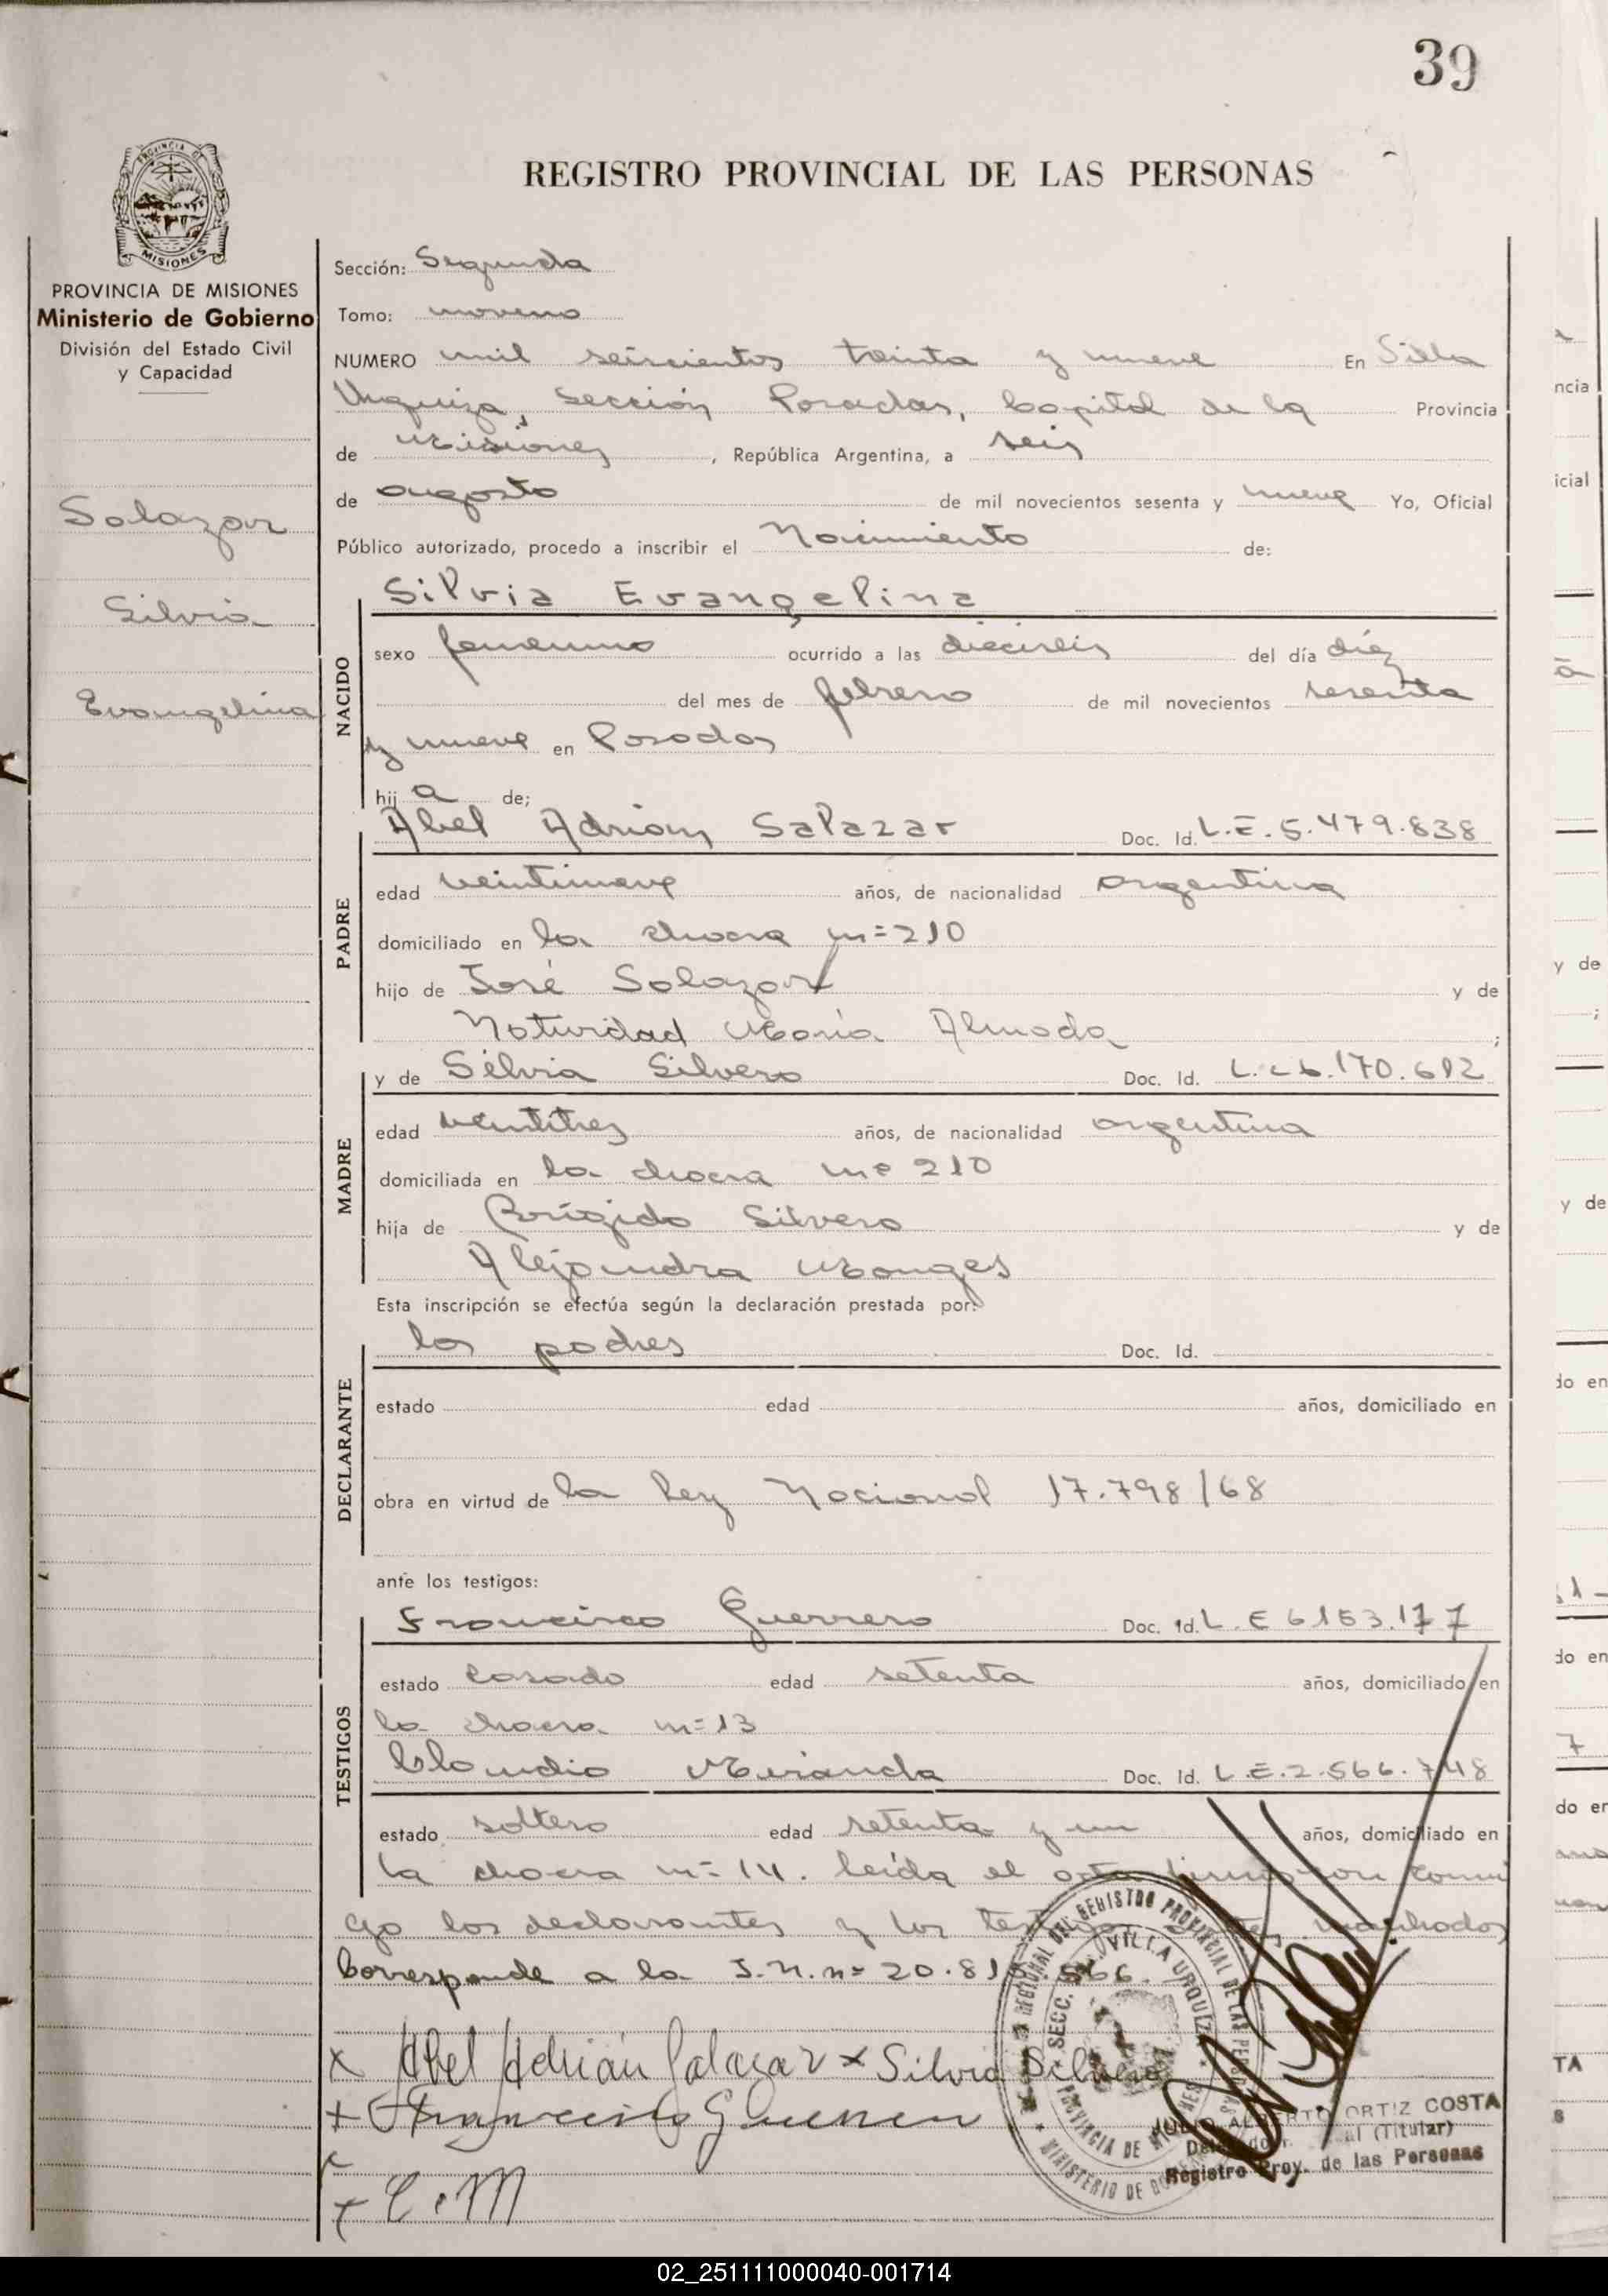 39
REGISTRO PROVINCIAL DE LAS PERSONAS
PROVINCIA DE MISIONES
Ministerio de Gobierno
División del Estado Civil
y Capacidad
Salazar
Silvia
Evangelina
Sección: Segunda
Tomo: noveno
NUMERO mil seiscientos treinta y nueve En Villa
Urquiza, Sección Posadas, Capital de la Provincia
de Misiones, República Argentina, a seis
de augosto de mil novecientos sesenta y nueve Yo, Oficial
Público autorizado, procedo a inscribir el Nacimiento de:
NACIDO
Silvia Evangelina
sexo femenino ocurrido a las dieciseis del día diez
del mes de febrero de mil novecientos sesenta
y nueve en Posadas
hij a de;
PADRE
Abel Adrian Salazar Doc. Id. L.E. 5.479.838
edad veintinueve años, de nacionalidad argentina
domiciliado en la chacra n=210
hijo de José Salazar y de
Natividad María Almada;
MADRE
y de Silvia Silvero Doc. Id. L.C 6.170.612
edad veintitres años, de nacionalidad argentina
domiciliada en la chacra nº 210
hija de Brígido Silvero y de
Alejandra Monges
Esta inscripción se efectúa según la declaración prestada por:
DECLARANTE
los padres Doc. Id.
estado edad años, domiciliado en
obra en virtud de la Ley Nacional 17.798/68
ante los testigos:
TESTIGOS
Francisco Guerrero Doc. Id. L.E 6153.177
estado casado edad setenta años, domiciliado en
la chacra n=13
Claudio Miranda Doc. Id. L.E.2.566.748
estado soltero edad setenta y un años, domiciliado en
la chacra n=14. leída el acta firmaron conmi
go los declarantes y los testigos
Corresponde a la I.N. n= 20.81 .566.
x Abel Adrián Salazar x Silvia Silvero
+ Francisco Guerrero
+ C.M
REGIONAL DEL REGISTRO PROVINCIAL DE LAS PERSONAS
SECC. VILLA URQUIZ
PROVINCIA DE MISIONES
MINISTERIO DE GO
JULIO ALBERTO ORTIZ COSTA
(Titular)
Registro Prov. de las Personas
02_251111000040-001714